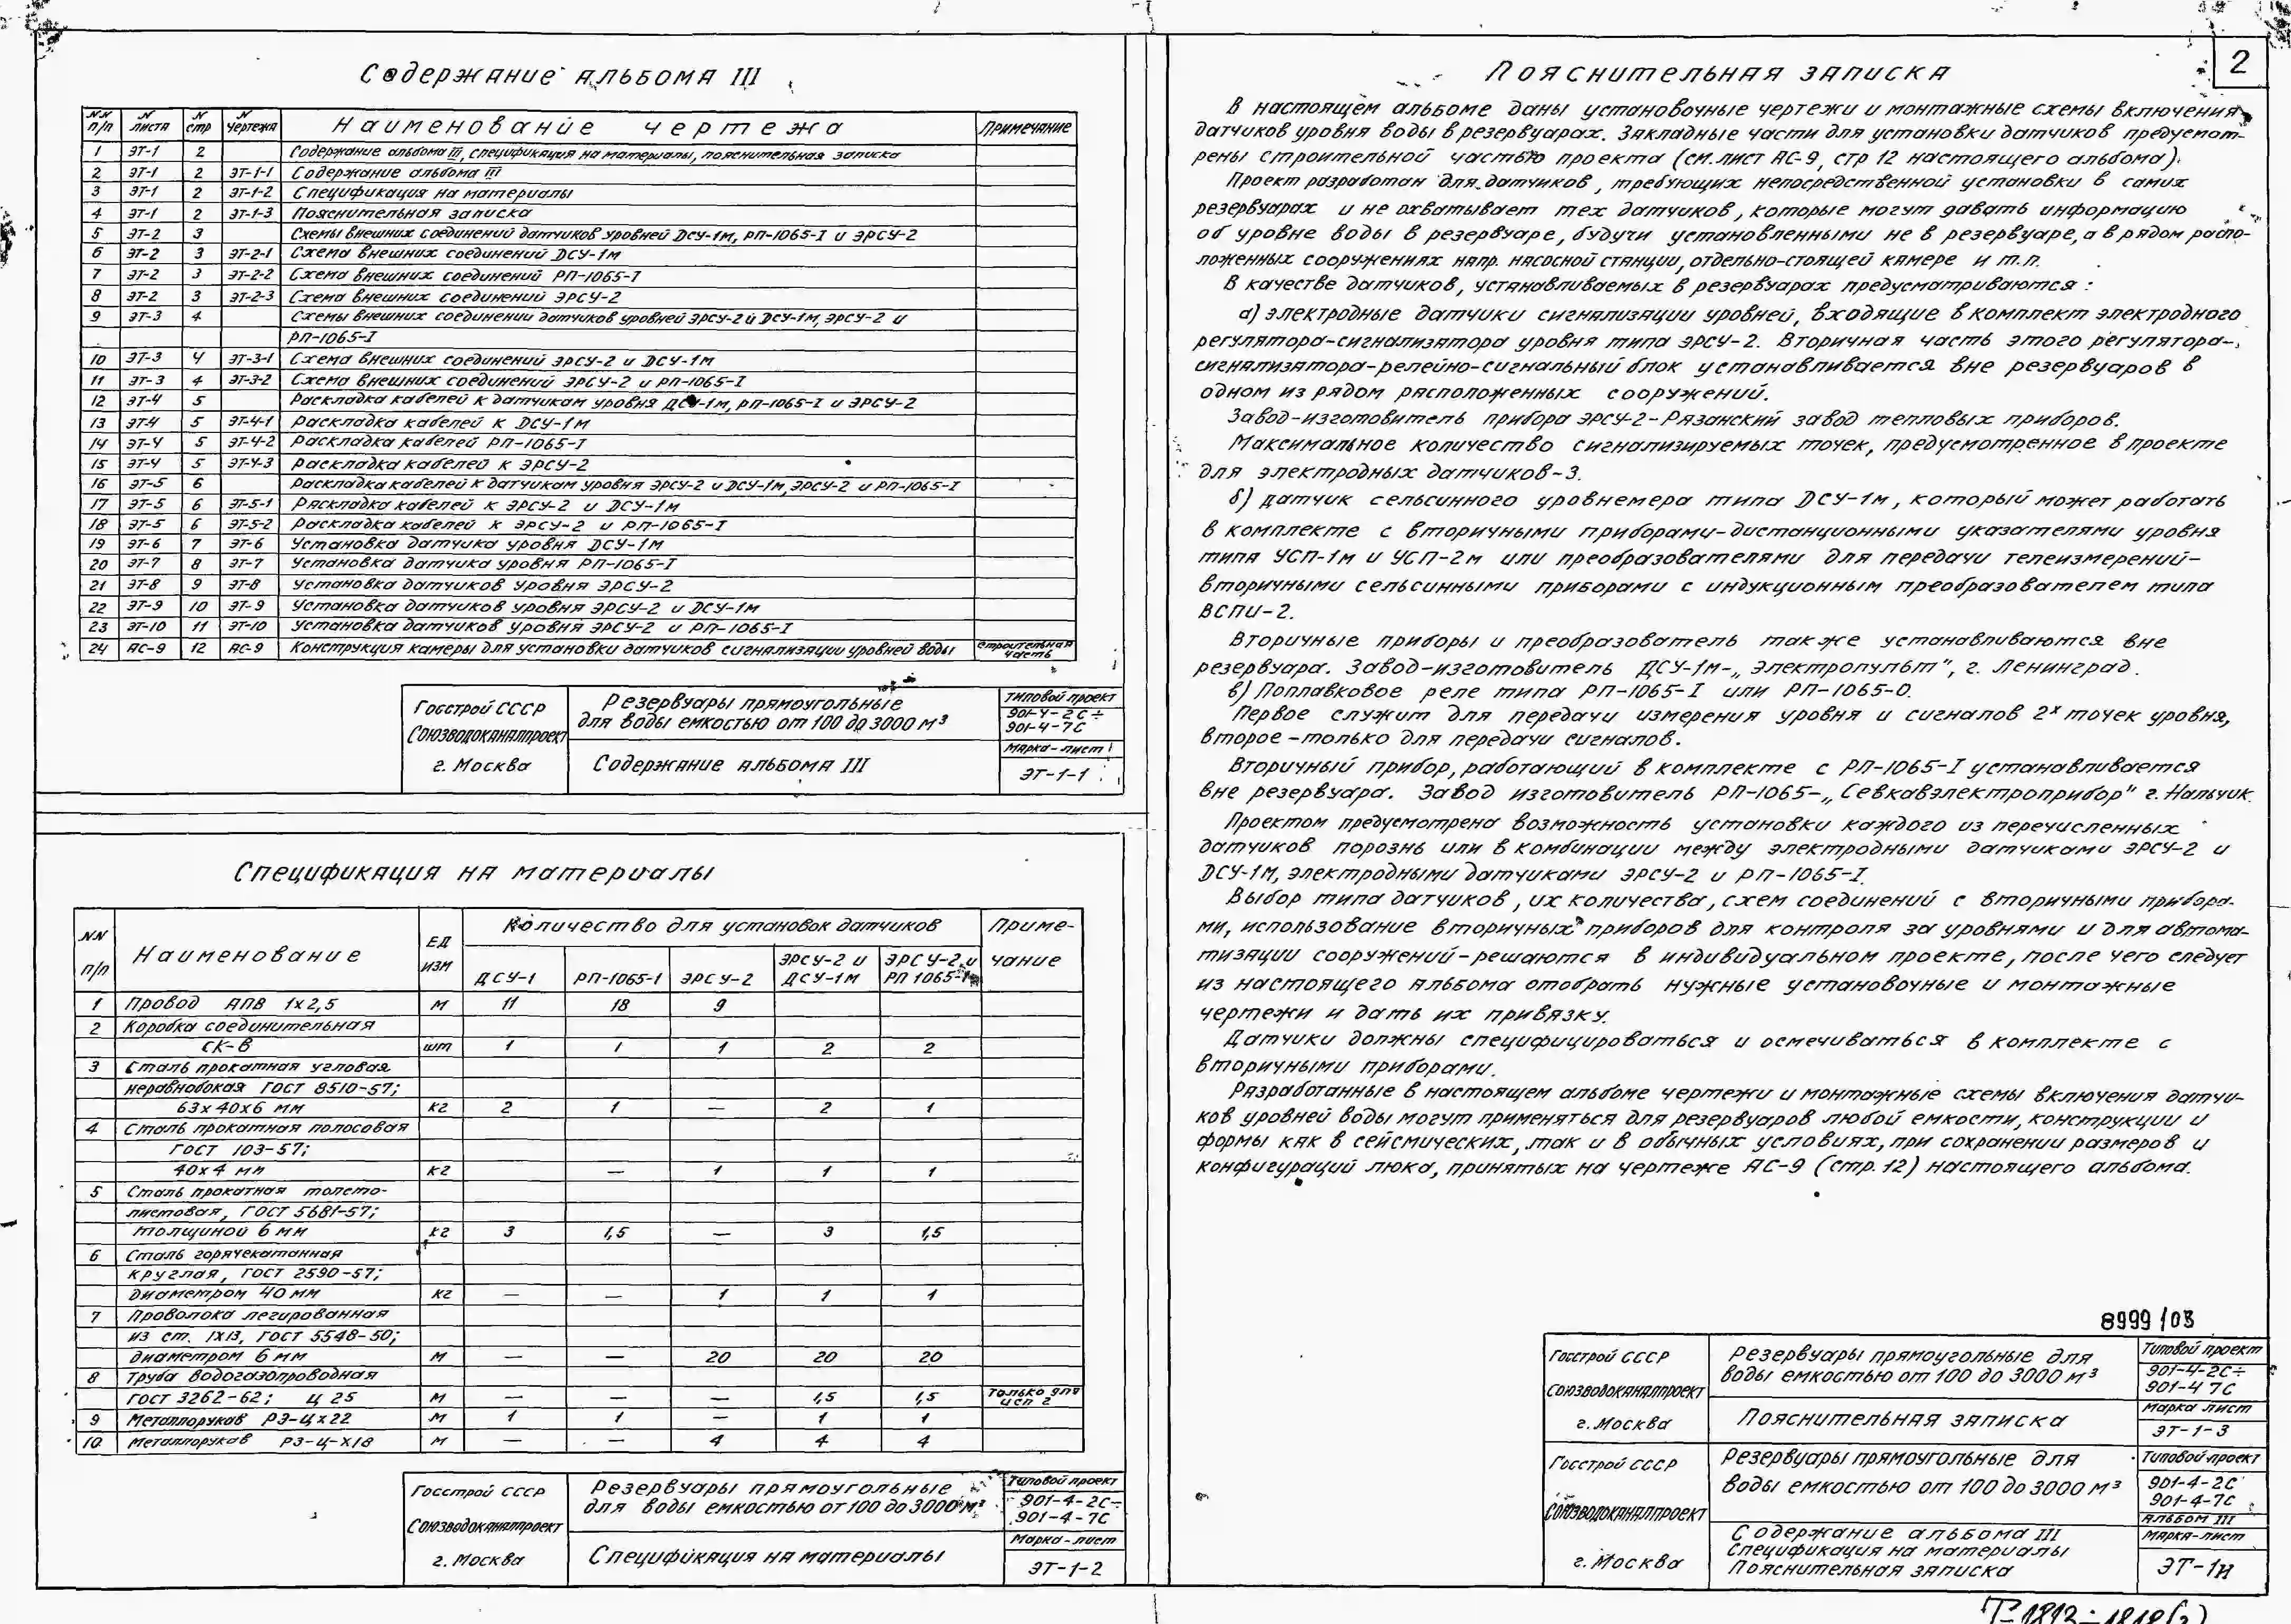 2
Содержание альбома III
NN п/п | N листа | N стр | N чертежа | Наименование чертежа | Примечание
1 | ЭТ-1 | 2 | | Содержание альбома III, спецификация на материалы, пояснительная записка
2 | ЭТ-1 | 2 | ЭТ-1-1 | Содержание альбома III
3 | ЭТ-1 | 2 | ЭТ-1-2 | Спецификация на материалы
4 | ЭТ-1 | 2 | ЭТ-1-3 | Пояснительная записка
5 | ЭТ-2 | 3 | | Схемы внешних соединений датчиков уровней ДСУ-1м, РП-1065-I и ЭРСУ-2
6 | ЭТ-2 | 3 | ЭТ-2-1 | Схема внешних соединений ДСУ-1м
7 | ЭТ-2 | 3 | ЭТ-2-2 | Схема внешних соединений РП-1065-I
8 | ЭТ-2 | 3 | ЭТ-2-3 | Схема внешних соединений ЭРСУ-2
9 | ЭТ-3 | 4 | | Схемы внешних соединении датчиков уровней ЭРСУ-2 и ДСУ-1м, ЭРСУ-2 и
РП-1065-I
10 | ЭТ-3 | 4 | ЭТ-3-1 | Схема внешних соединений ЭРСУ-2 и ДСУ-1м
11 | ЭТ-3 | 4 | ЭТ-3-2 | Схема внешних соединений ЭРСУ-2 и РП-1065-I
12 | ЭТ-4 | 5 | | Раскладка кабелей к датчикам уровня ДСУ-1м, РП-1065-I и ЭРСУ-2
13 | ЭТ-4 | 5 | ЭТ-4-1 | Раскладка кабелей к ДСУ-1м
14 | ЭТ-4 | 5 | ЭТ-4-2 | Раскладка кабелей РП-1065-I
15 | ЭТ-4 | 5 | ЭТ-4-3 | Раскладка кабелей к ЭРСУ-2
16 | ЭТ-5 | 6 | | Раскладка кабелей к датчикам уровня ЭРСУ-2 и ДСУ-1м, ЭРСУ-2 и РП-1065-I
17 | ЭТ-5 | 6 | ЭТ-5-1 | Раскладка кабелей к ЭРСУ-2 и ДСУ-1м
18 | ЭТ-5 | 6 | ЭТ-5-2 | Раскладка кабелей к ЭРСУ-2 и РП-1065-I
19 | ЭТ-6 | 7 | ЭТ-6 | Установка датчика уровня ДСУ-1м
20 | ЭТ-7 | 8 | ЭТ-7 | Установка датчика уровня РП-1065-I
21 | ЭТ-8 | 9 | ЭТ-8 | Установка датчиков уровня ЭРСУ-2
22 | ЭТ-9 | 10 | ЭТ-9 | Установка датчиков уровня ЭРСУ-2 и ДСУ-1м
23 | ЭТ-10 | 11 | ЭТ-10 | Установка датчиков уровня ЭРСУ-2 и РП-1065-I
24 | АС-9 | 12 | АС-9 | Конструкция камеры для установки датчиков сигнализации уровней воды | строительная часть
Госстрой СССР
Союзводоканалпроект
г. Москва
Резервуары прямоугольные
для воды емкостью от 100 до 3000 м³
Содержание альбома III
Типовой проект
901-4-2С÷
901-4-7С
Марка-лист
ЭТ-1-1
Спецификация на материалы
NN п/п | Наименование | Ед изм | Количество для установок датчиков | Примечание
ДСУ-1 | РП-1065-1 | ЭРСУ-2 | ЭРСУ-2 и ДСУ-1м | ЭРСУ-2 и РП 1065-1
1 | Провод АПВ 1х2,5 | м | 11 | 18 | 9
2 | Коробка соединительная
СК-8 | шт | 1 | 1 | 1 | 2 | 2
3 | Сталь прокатная угловая
неравнобокая ГОСТ 8510-57;
63х40х6 мм | кг | 2 | 1 | — | 2 | 1
4 | Сталь прокатная полосовая
ГОСТ 103-57;
40х4 мм | кг | | — | 1 | 1 | 1
5 | Сталь прокатная толсто-
листовая, ГОСТ 5681-57;
толщиной 6 мм | кг | 3 | 1,5 | — | 3 | 1,5
6 | Сталь горячекатанная
круглая, ГОСТ 2590-57;
диаметром 40 мм | кг | — | — | 1 | 1 | 1
7 | Проволока легированная
из ст. 1Х13, ГОСТ 5548-50;
диаметром 6 мм | м | — | — | 20 | 20 | 20
8 | Труба водогазопроводная
ГОСТ 3262-62; Ц 25 | м | — | — | — | 1,5 | 1,5 | только для исп 2
9 | Металлорукав РЗ-Цх22 | м | 1 | 1 | — | 1 | 1
10 | Металлорукав РЗ-Ц-Х18 | м | — | — | 4 | 4 | 4
Госстрой СССР
Союзводоканалпроект
г. Москва
Резервуары прямоугольные
для воды емкостью от 100 до 3000 м³
Спецификация на материалы
Типовой проект
901-4-2С÷
901-4-7С
Марка-лист
ЭТ-1-2
Пояснительная записка
В настоящем альбоме даны установочные чертежи и монтажные схемы включения
датчиков уровня воды в резервуарах. Закладные части для установки датчиков предусмот-
рены строительной частью проекта (см. лист АС-9, стр 12 настоящего альбома).
Проект разработан для датчиков, требующих непосредственной установки в самих
резервуарах и не охватывает тех датчиков, которые могут давать информацию
об уровне воды в резервуаре, будучи установленными не в резервуаре, а в рядом распо-
ложенных сооружениях напр. насосной станции, отдельно-стоящей камере и т.п.
В качестве датчиков, устанавливаемых в резервуарах предусматриваются:
а) электродные датчики сигнализации уровней, входящие в комплект электродного
регулятора-сигнализатора уровня типа ЭРСУ-2. Вторичная часть этого регулятора-
сигнализатора-релейно-сигнальный блок устанавливается вне резервуаров в
одном из рядом расположенных сооружений.
Завод-изготовитель прибора ЭРСУ-2-Рязанский завод тепловых приборов.
Максимальное количество сигнализируемых точек, предусмотренное в проекте
для электродных датчиков-3.
б) датчик сельсинного уровнемера типа ДСУ-1м, который может работать
в комплекте с вторичными приборами-дистанционными указателями уровня
типа УСП-1м и УСП-2м или преобразователями для передачи телеизмерений-
вторичными сельсинными приборами с индукционным преобразователем типа
ВСПИ-2.
Вторичные приборы и преобразователь также устанавливаются вне
резервуара. Завод-изготовитель ДСУ-1м-„Электропульт", г. Ленинград.
в) Поплавковое реле типа РП-1065-I или РП-1065-0.
Первое служит для передачи измерения уровня и сигналов 2х точек уровня,
второе-только для передачи сигналов.
Вторичный прибор, работающий в комплекте с РП-1065-I устанавливается
вне резервуара. Завод изготовитель РП-1065-„Севкавэлектроприбор" г. Нальчик.
Проектом предусмотрена возможность установки каждого из перечисленных
датчиков порознь или в комбинации между электродными датчиками ЭРСУ-2 и
ДСУ-1М, электродными датчиками ЭРСУ-2 и РП-1065-I.
Выбор типа датчиков, их количества, схем соединений с вторичными прибора-
ми, использование вторичных приборов для контроля за уровнями и для автома-
тизации сооружений-решаются в индивидуальном проекте, после чего следует
из настоящего альбома отобрать нужные установочные и монтажные
чертежи и дать их привязку.
Датчики должны специфицироваться и осмечиваться в комплекте с
вторичными приборами.
Разработанные в настоящем альбоме чертежи и монтажные схемы включения датчи-
ков уровней воды могут применяться для резервуаров любой емкости, конструкции и
формы как в сейсмических, так и в обычных условиях, при сохранении размеров и
конфигураций люка, принятых на чертеже АС-9 (стр. 12) настоящего альбома.
8999/03
Госстрой СССР
Союзводоканалпроект
г. Москва
Резервуары прямоугольные для
воды емкостью от 100 до 3000 м³
Пояснительная записка
Типовой проект
901-4-2С÷
901-4 7С
Марка лист
ЭТ-1-3
Госстрой СССР
Союзводоканалпроект
г. Москва
Резервуары прямоугольные для
воды емкостью от 100 до 3000 м³
Содержание альбома III
Спецификация на материалы
Пояснительная записка
Типовой проект
901-4-2С
901-4-7С
Альбом III
Марка-лист
ЭТ-1и